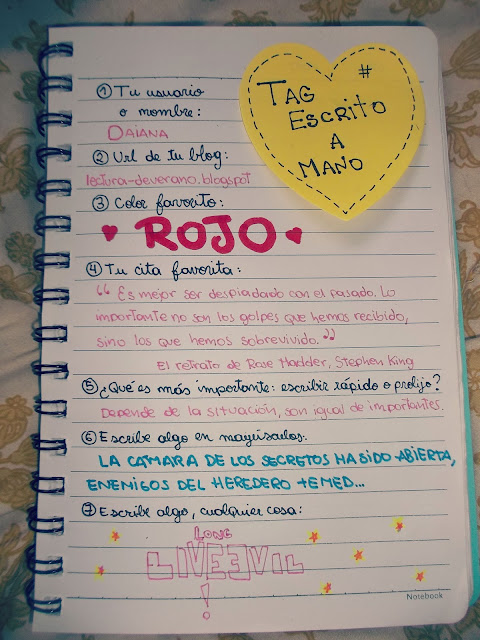 # TAG
ESCRITO
A
MANO
① Tu usuario
o nombre:
DAIANA
② Url de tu blog:
lectura-deverano.blogspot
③ Color favorito:
ROJO
④ Tu cita favorita:
“Es mejor ser despiadado con el pasado. Lo
importante no son los golpes que hemos recibido,
sino los que hemos sobrevivido.”
El retrato de Rose Madder, Stephen King
⑤ ¿Qué es más importante: escribir rápido o prolijo?
Depende de la situación, son igual de importantes.
⑥ Escribe algo en mayúsculas:
LA CÁMARA DE LOS SECRETOS HA SIDO ABIERTA,
ENEMIGOS DEL HEREDERO TEMED...
⑦ Escribe algo, cualquier cosa:
LONG
LIVE EVIL
!
Notebook